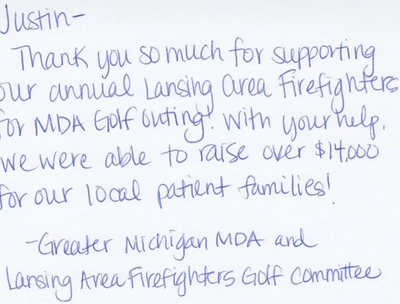 Justin-
Thank you so much for supporting
our annual Lansing Area Firefighters
for MDA Golf outing! With your help,
we were able to raise over $14,000
for our local patient families!
-Greater Michigan MDA and
Lansing Area Firefighters Golf Committee